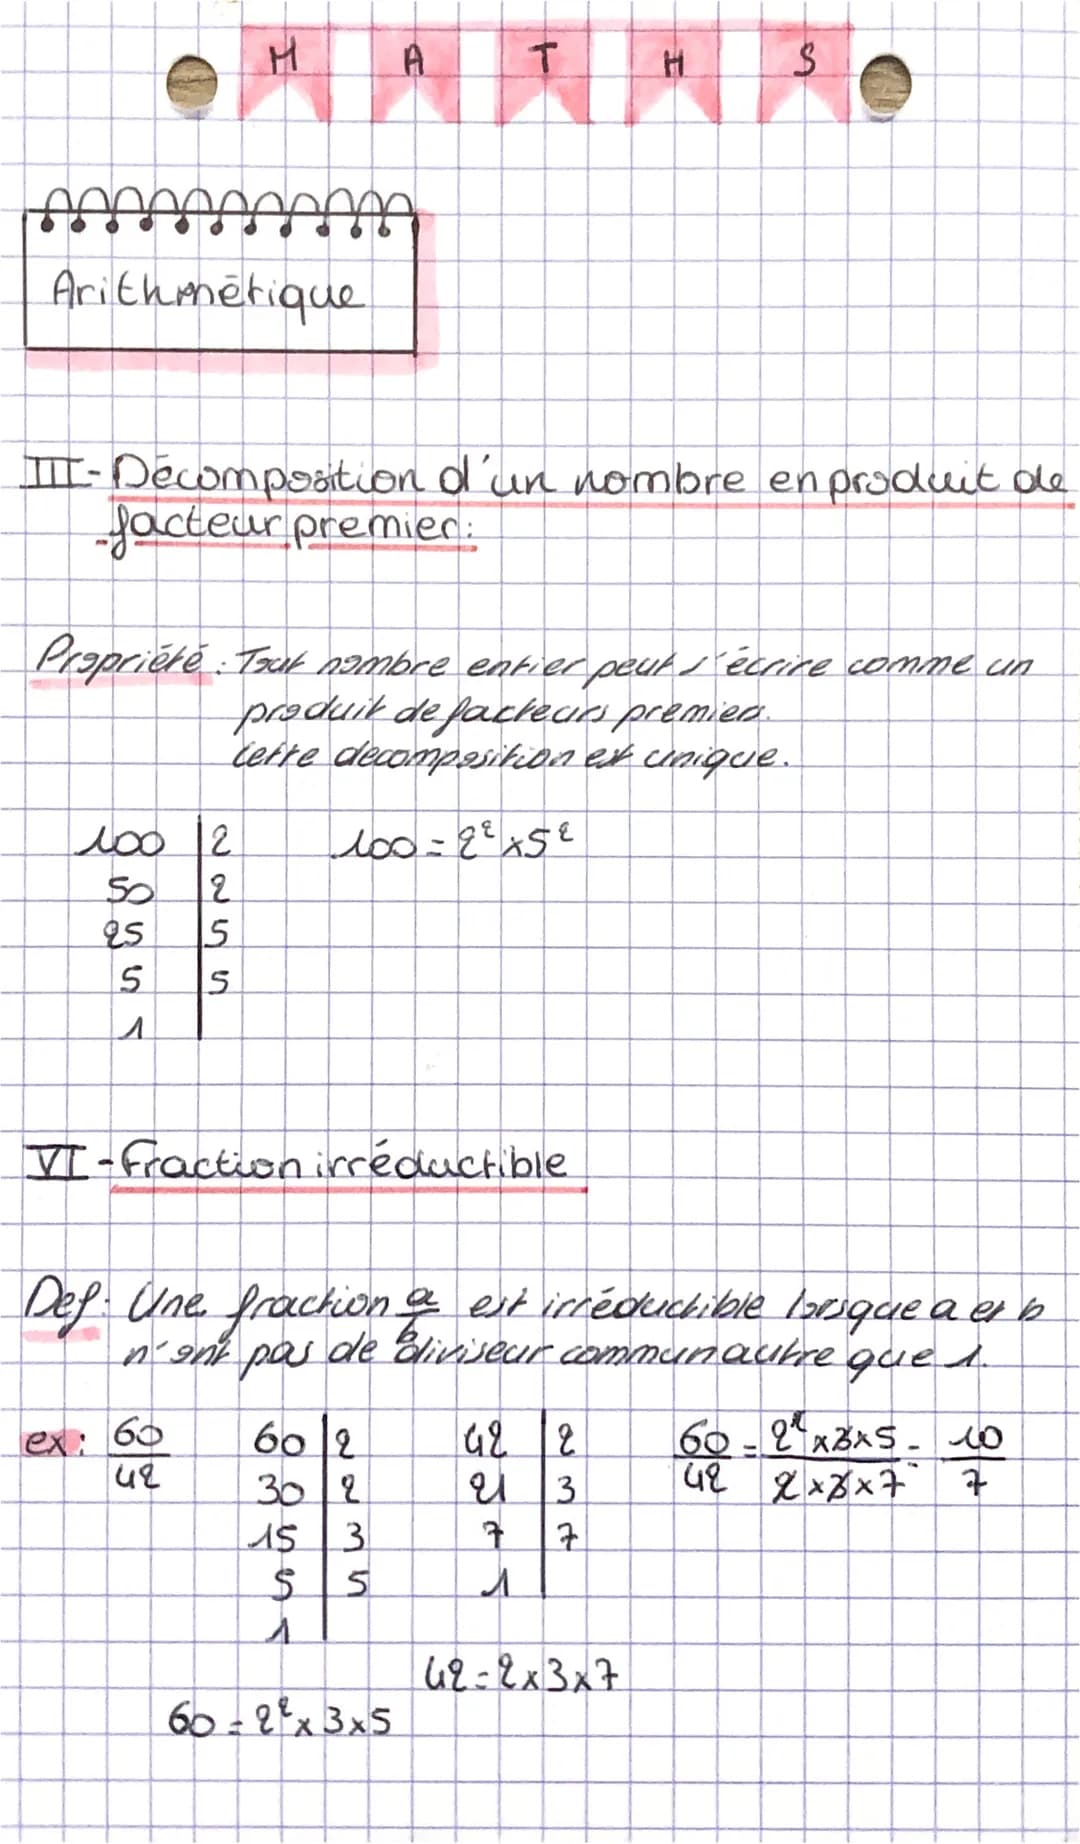 M A T H S
Arithmétique
III-Décomposition d'un nombre en produit de
facteur premier:
Propriété : Tout nombre entier peut s'écrire comme un
produit de facteurs premiers.
Cette decomposition est unique.
100 | 2 100 = 2² × 5²
50 | 2
25 | 5
5 | 5
1 |
VI - Fraction irréductible
Def: Une fraction a/b est irréductible lorsque a et b
n'ont pas de diviseur commun autre que 1.
ex: 60/42 60 | 2 42 | 2 60/42 = 2²×3×5/2×3×7 = 10/7
30 | 2 21 | 3
15 | 3 7 | 7
5 | 5 1 |
1 |
42 = 2×3×7
60 = 2²×3×5